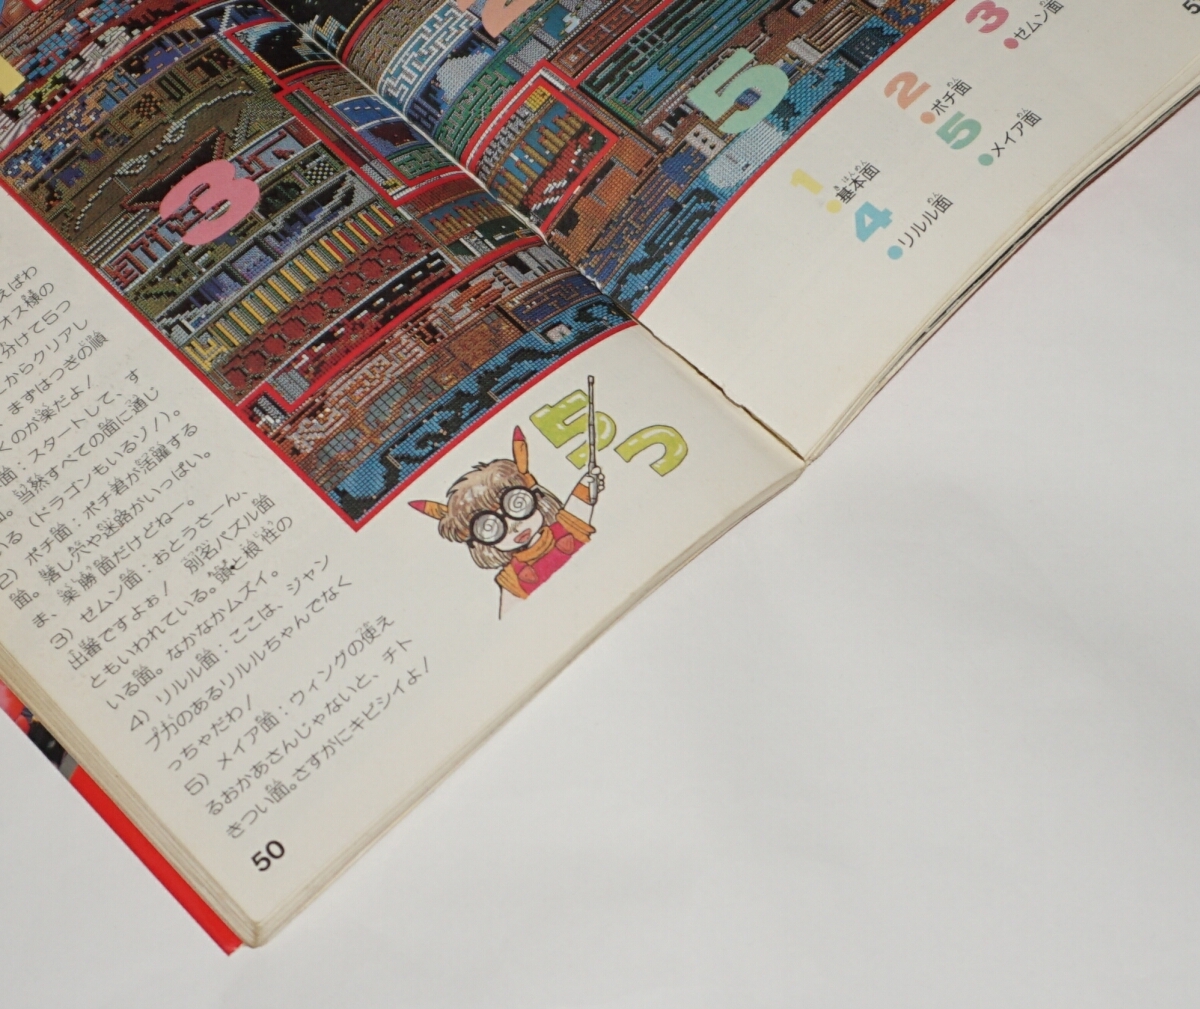 2
3
5
えばわ
オス様の
分けて5つ
からクリアし
まずはつぎの順
くのが楽だよ!
面:スタートして、す
当然すべての面に通じ
いる(ドラゴンもいるゾノ)。
2)ポチ面:ポチ君が活躍する
面。落し穴や迷路がいっぱい。
ま、楽勝面だけどねー。
3)ゼムン面:おとうさーん、
出番ですよぉ! 別名パズル面
ともいわれている。頭と根性の
いる面。なかなかムズイ。
4)リルル面:ここは、ジャン
プ力のあるリルルちゃんでなく
っちゃだわ!
5)メイア面:ウィングの使え
るおかあさんじゃないと、チト
きつい面。さすがにキビシイよ!
50
1
●基本面
きほんめん
2
●ポチ面
めん
3
●ゼムン面
めん
4
●リルル面
めん
5
●メイア面
めん